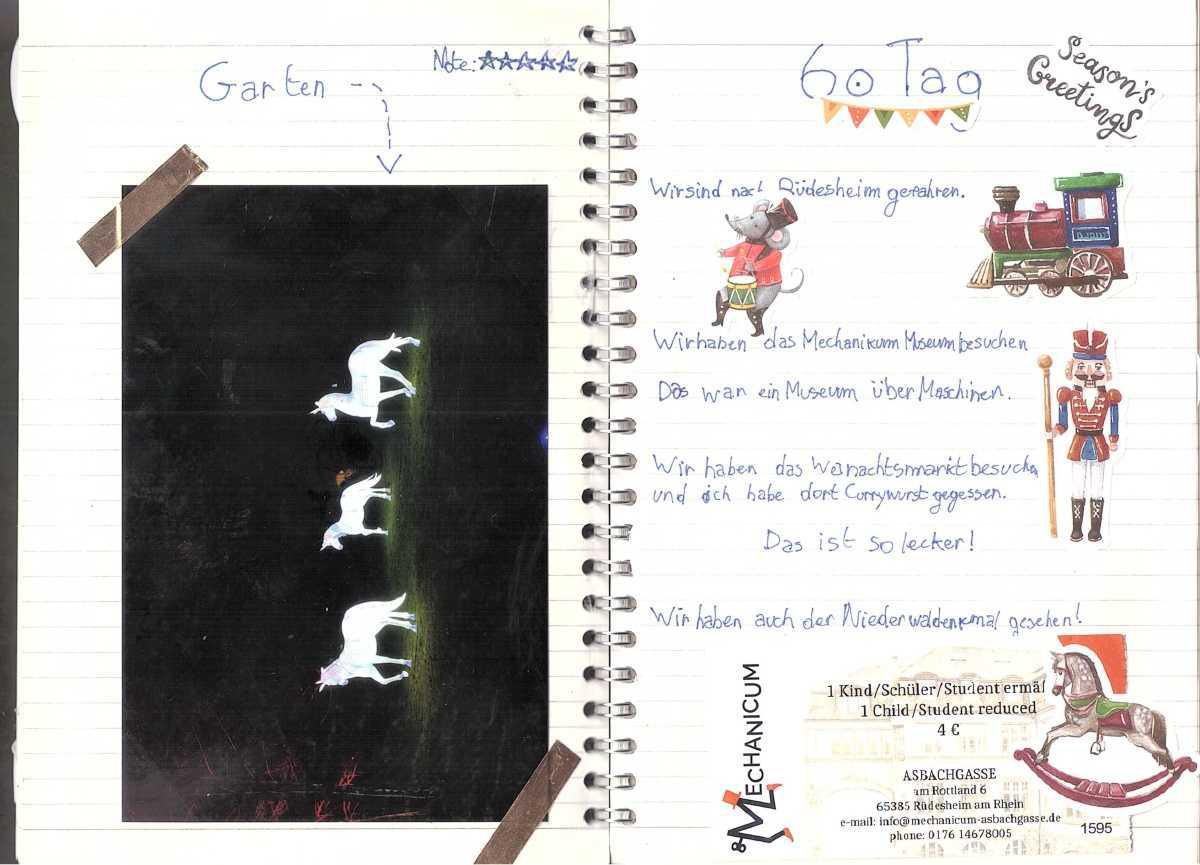 Garten
Note: ☆☆☆☆☆
60 Tag
Season's
Greetings
Wir sind nach Rüdesheim gefahren.
Wir haben das Mechanikum Museum besuchen
Das war ein Museum über Maschinen.
Wir haben das Weinachtsmarkt besuchen
und ich habe dort Currywurst gegessen.
Das ist so lecker!
Wir haben auch der Niederwaldenkmal gesehen!
MECHANICUM
1 Kind/Schüler/Student ermäß
1 Child/Student reduced
4 €
ASBACHGASSE
am Rottland 6
65385 Rüdesheim am Rhein
e-mail: info@mechanicum-asbachgasse.de
phone: 0176 14678005
1595